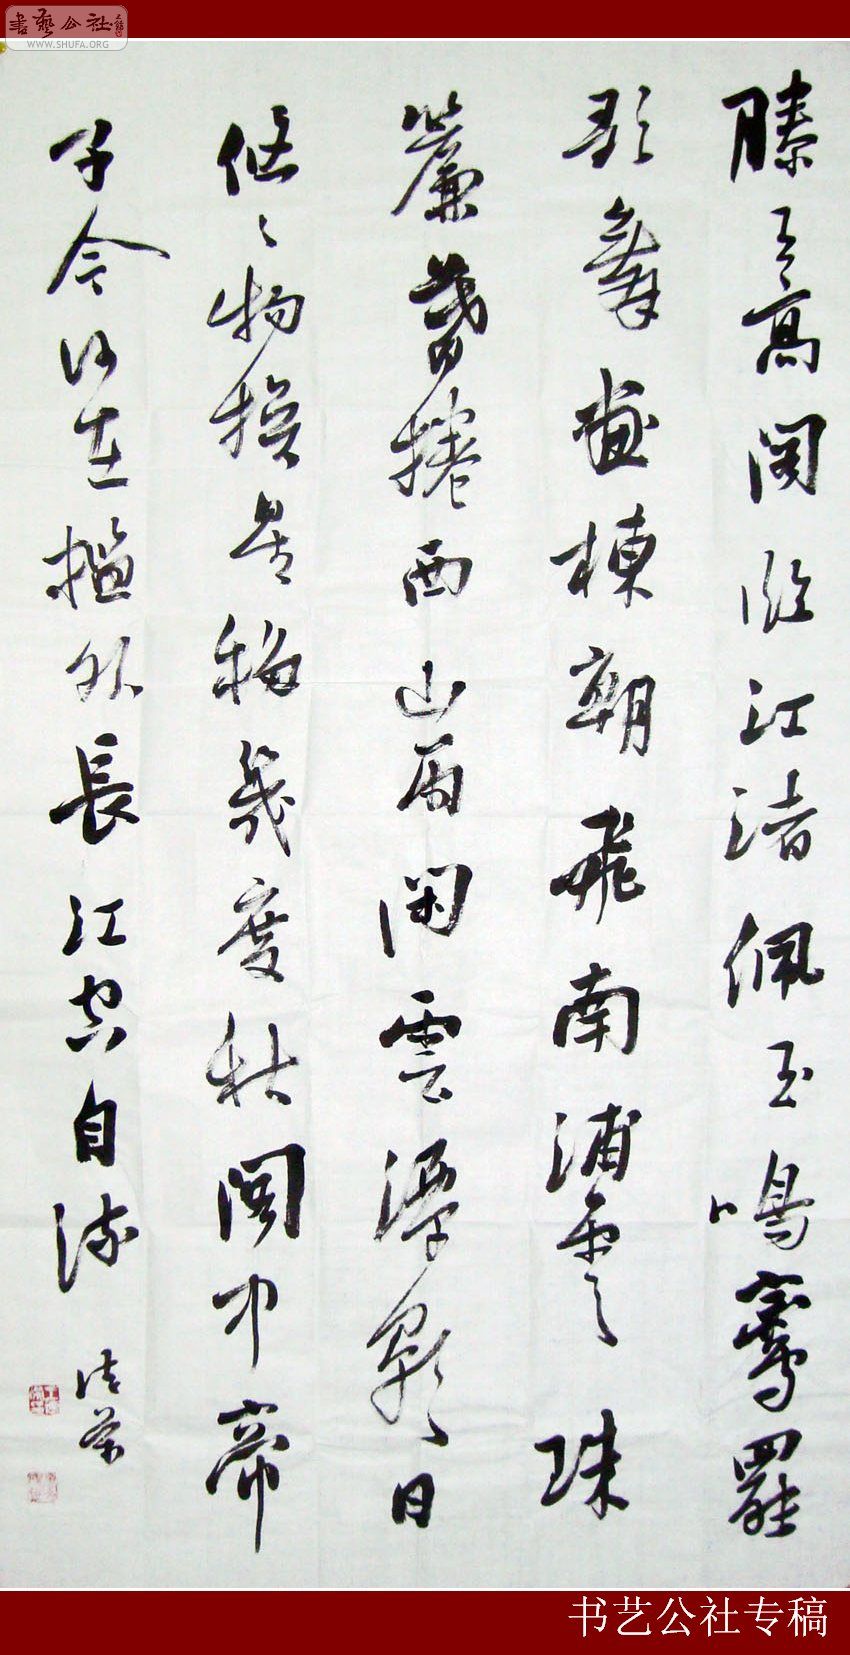 書藝公社
WWW.SHUFA.ORG
滕王高閣臨江渚佩玉鳴鸞罷
歌舞畫棟朝飛南浦雲珠
簾暮捲西山雨閑雲潭影日
悠々物換星移幾度秋閣中帝
子今何在檻外長江空自流
书艺公社专稿